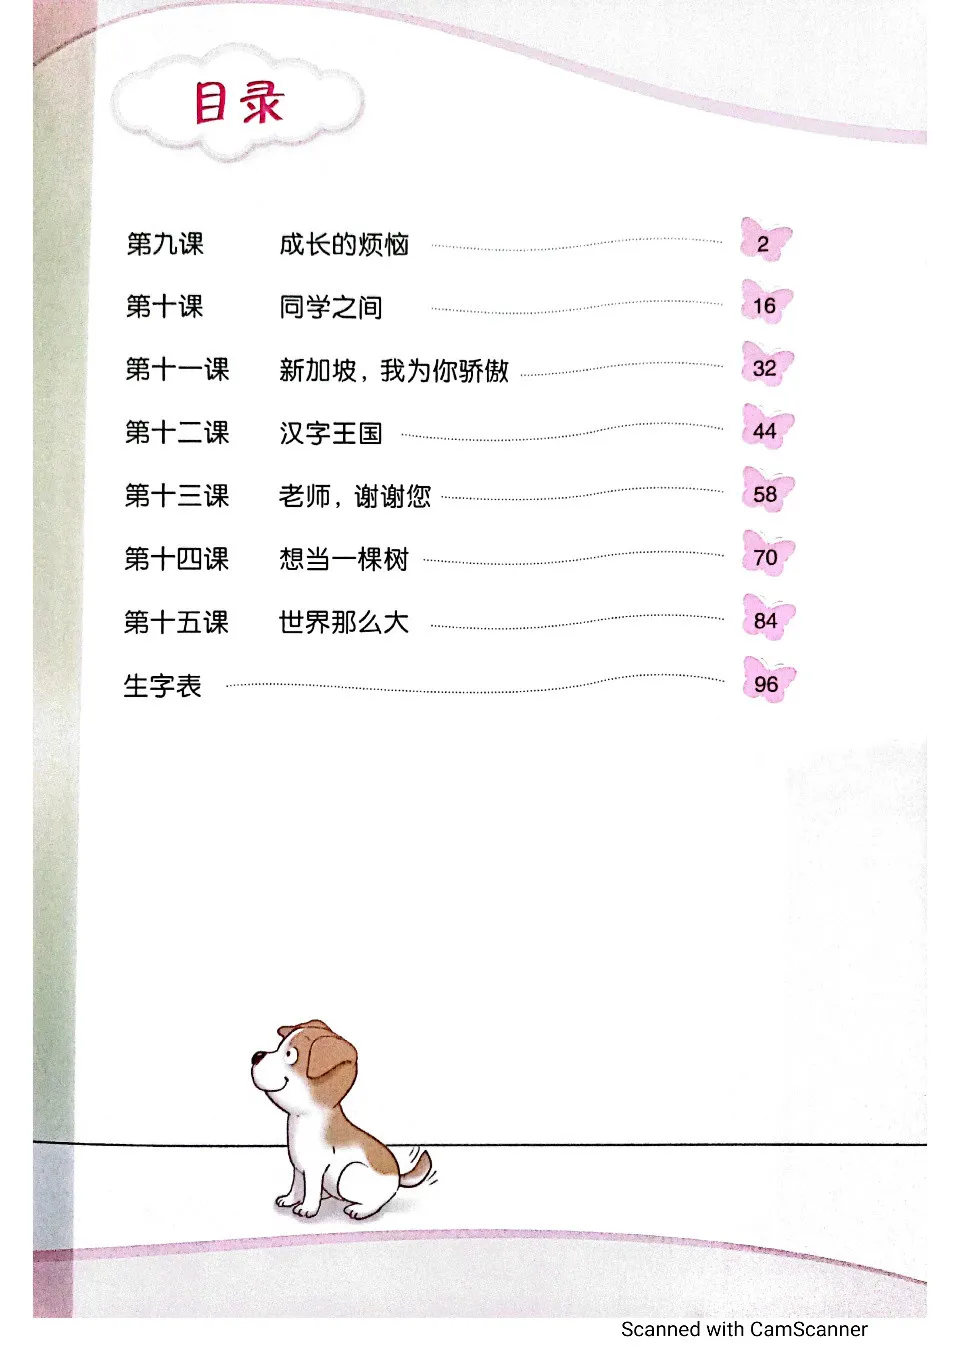 目录
第九课 成长的烦恼 2
第十课 同学之间 16
第十一课 新加坡，我为你骄傲 32
第十二课 汉字王国 44
第十三课 老师，谢谢您 58
第十四课 想当一棵树 70
第十五课 世界那么大 84
生字表 96
Scanned with CamScanner